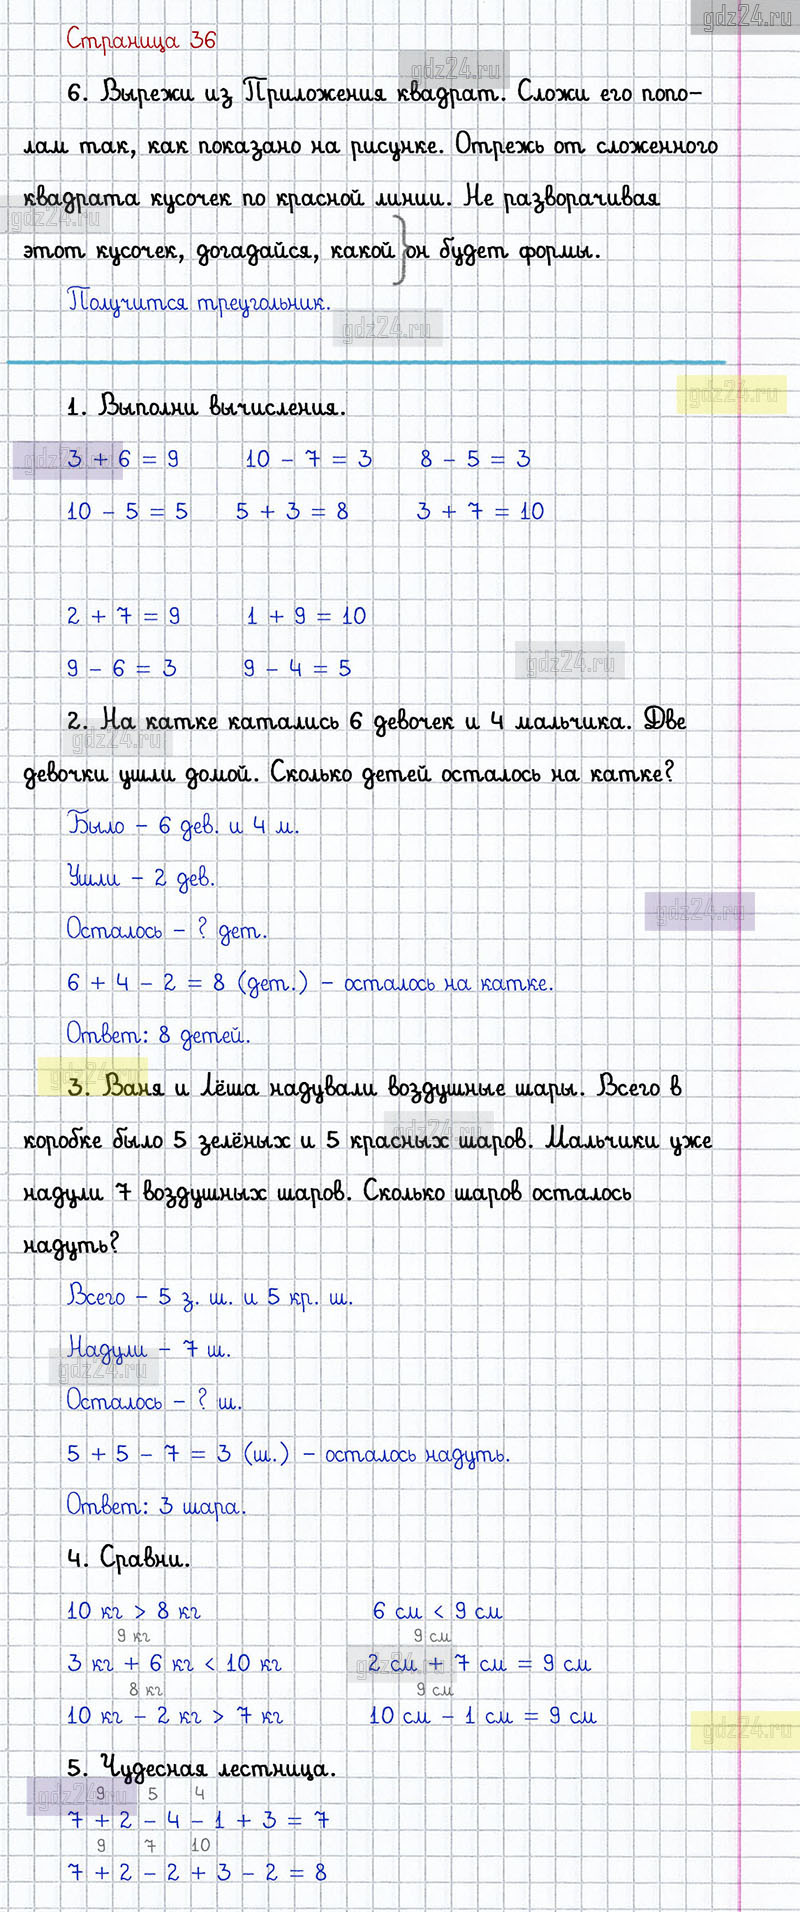 gdz24.ru
Страница 36
gdz24.ru
6. Вырежи из Приложения квадрат. Сложи его попо-
лам так, как показано на рисунке. Отрежь от сложенного
квадрата кусочек по красной линии. Не разворачивая
gdz24.ru
этот кусочек, догадайся, какой он будет формы.
Получится треугольник.
gdz24.ru
gdz24.ru
1. Выполни вычисления.
gdz24.ru
3 + 6 = 9 10 - 7 = 3 8 - 5 = 3
10 - 5 = 5 5 + 3 = 8 3 + 7 = 10
2 + 7 = 9 1 + 9 = 10
9 - 6 = 3 9 - 4 = 5
gdz24.ru
2. На катке катались 6 девочек и 4 мальчика. Две
gdz24.ru
девочки ушли домой. Сколько детей осталось на катке?
Было - 6 дев. и 4 м.
Ушли - 2 дев.
gdz24.ru
Осталось - ? дет.
6 + 4 - 2 = 8 (дет.) - осталось на катке.
Ответ: 8 детей.
gdz24.ru
3. Ваня и Лёша надували воздушные шары. Всего в
gdz24.ru
коробке было 5 зелёных и 5 красных шаров. Мальчики уже
надули 7 воздушных шаров. Сколько шаров осталось
надуть?
Всего - 5 з. ш. и 5 кр. ш.
Надули - 7 ш.
gdz24.ru
Осталось - ? ш.
5 + 5 - 7 = 3 (ш.) - осталось надуть.
Ответ: 3 шара.
4. Сравни.
10 кг > 8 кг 6 см < 9 см
9 кг 9 см
3 кг + 6 кг < 10 кг 2 см + 7 см = 9 см
gdz24.ru
8 кг 9 см
10 кг - 2 кг > 7 кг 10 см - 1 см = 9 см
gdz24.ru
5. Чудесная лестница.
gdz24.ru
9 5 4
7 + 2 - 4 - 1 + 3 = 7
9 7 10
7 + 2 - 2 + 3 - 2 = 8